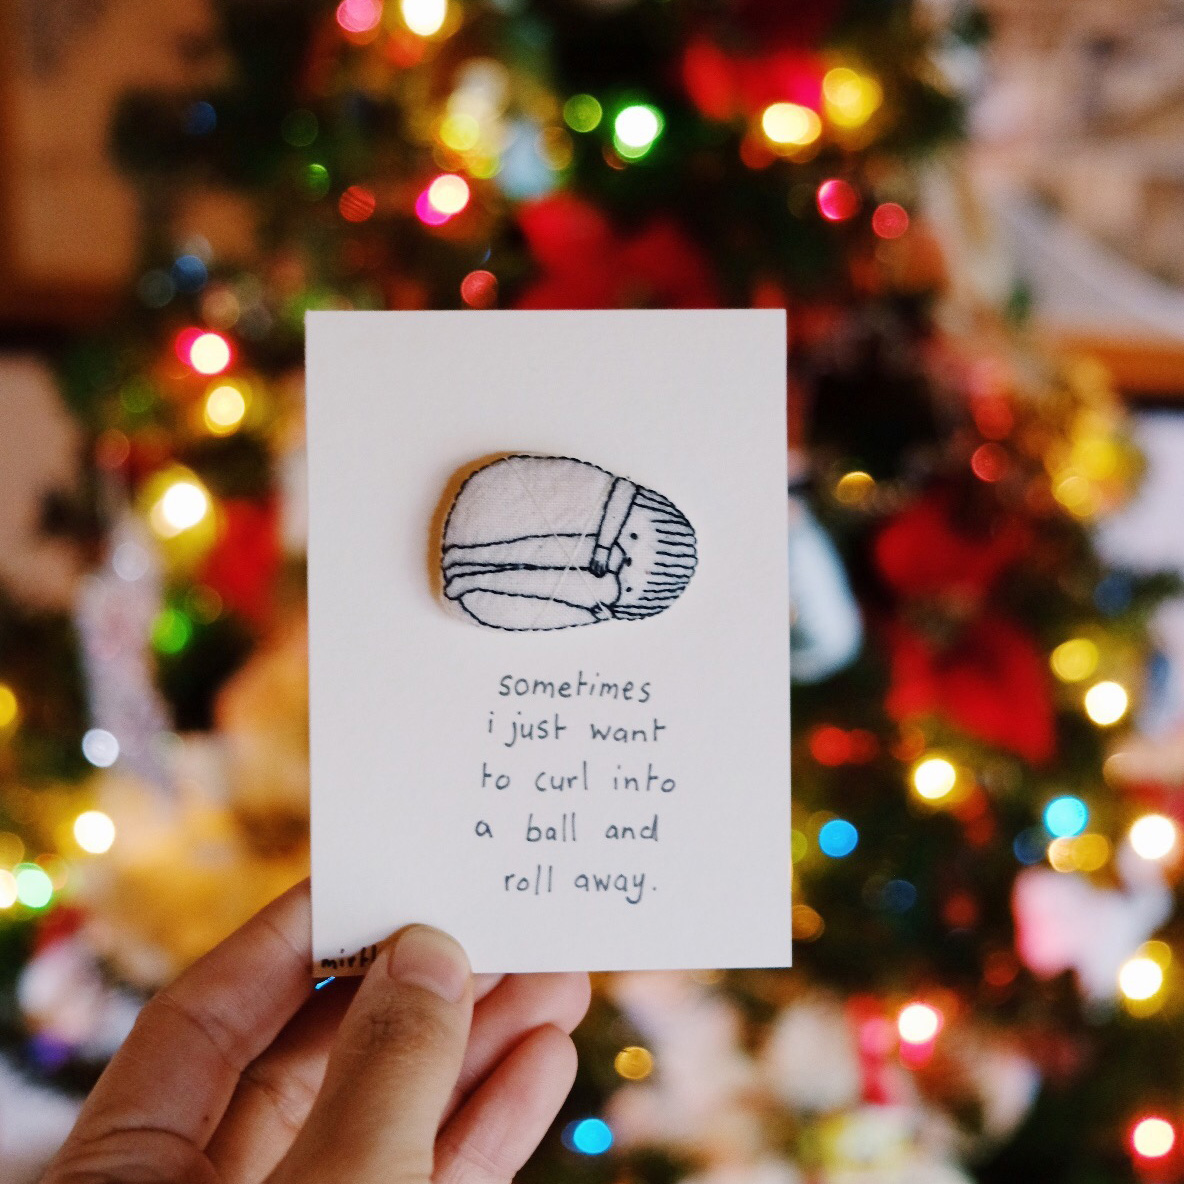 sometimes
i just want
to curl into
a ball and
roll away.